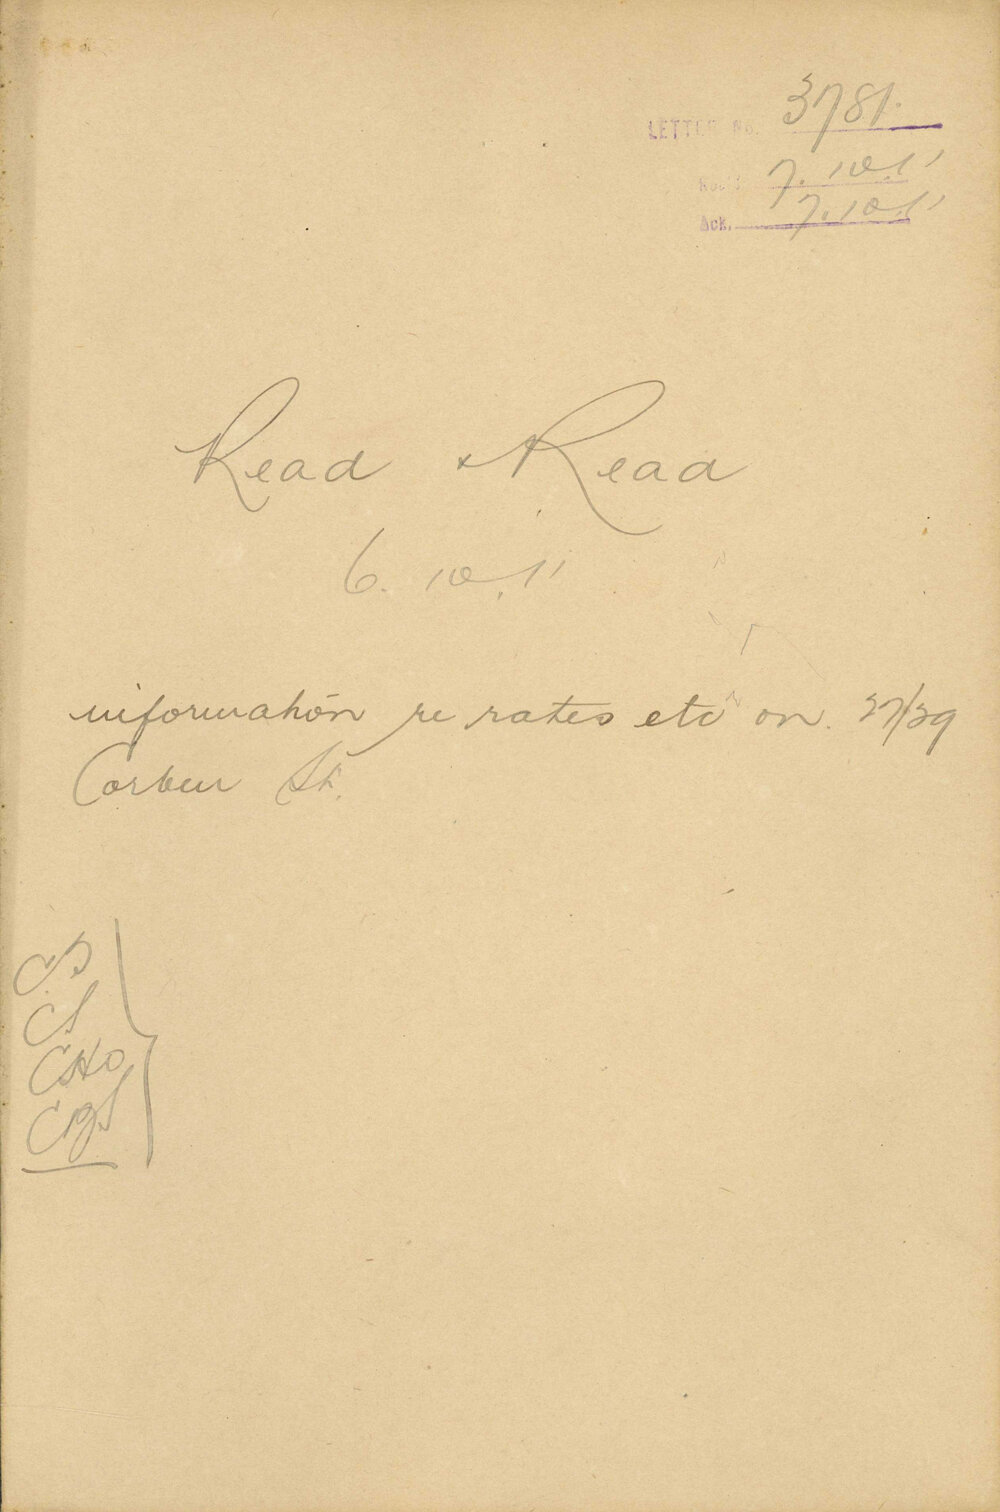 LETTER No. 3781.
Rec'd 7.10.11
Ack. 7.10.11
Read & Read
6.10.11
information re rates etc on 27/29
Corben St.
C.S
CS
CHO
CBS